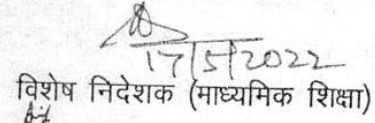 17/5/2022
विशेष निदेशक (माध्यमिक शिक्षा)